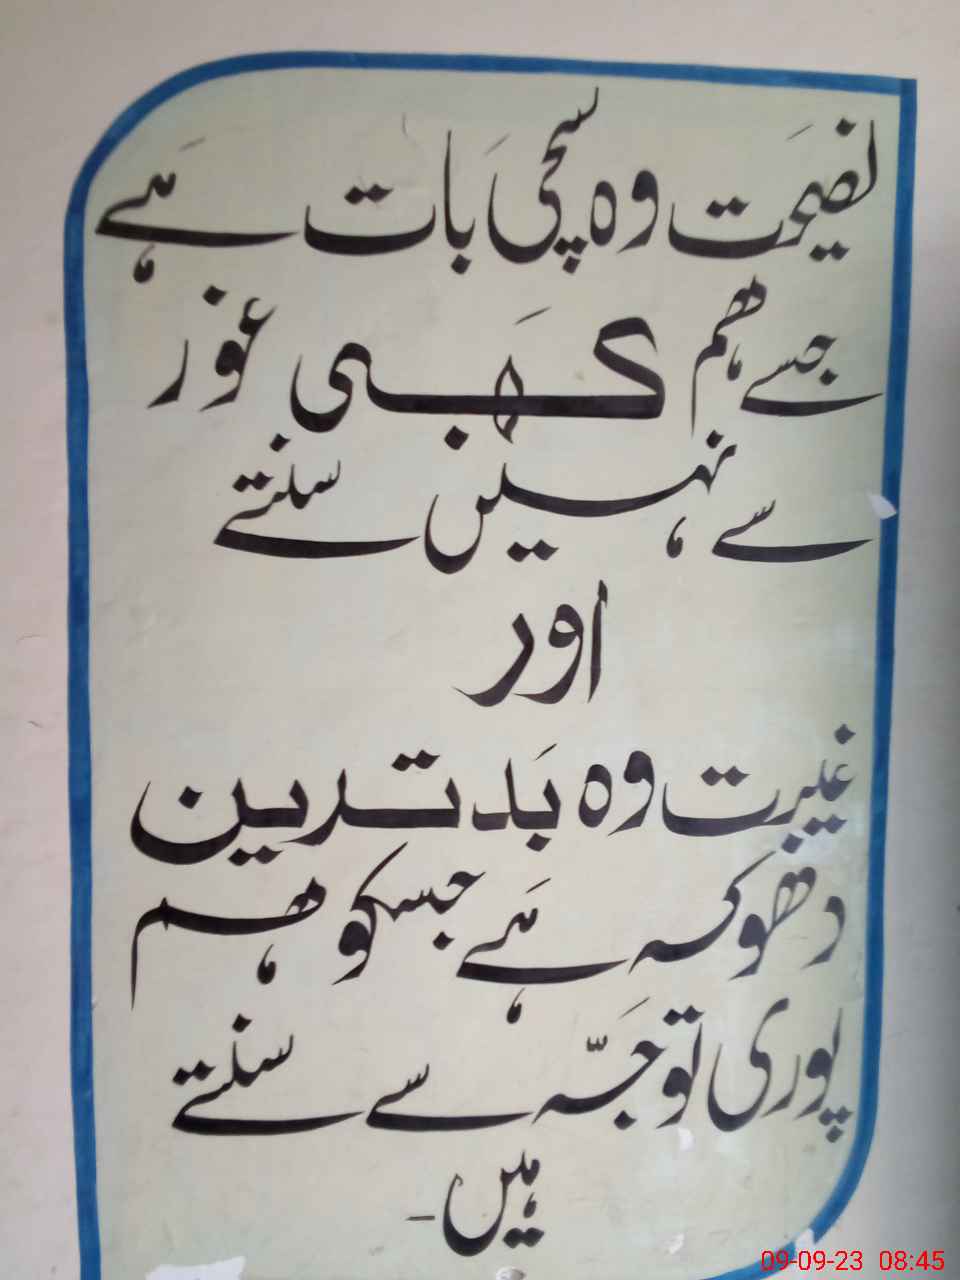 نصیحت وہ سچی بات ہے
جسے ھم کبھی غور
سے نہیں سنتے
اور
غیبت وہ بدترین
دھوکہ ہے جسکو ھم
پوری توجّہ سے سنتے
ہیں۔
09-09-23 08:45